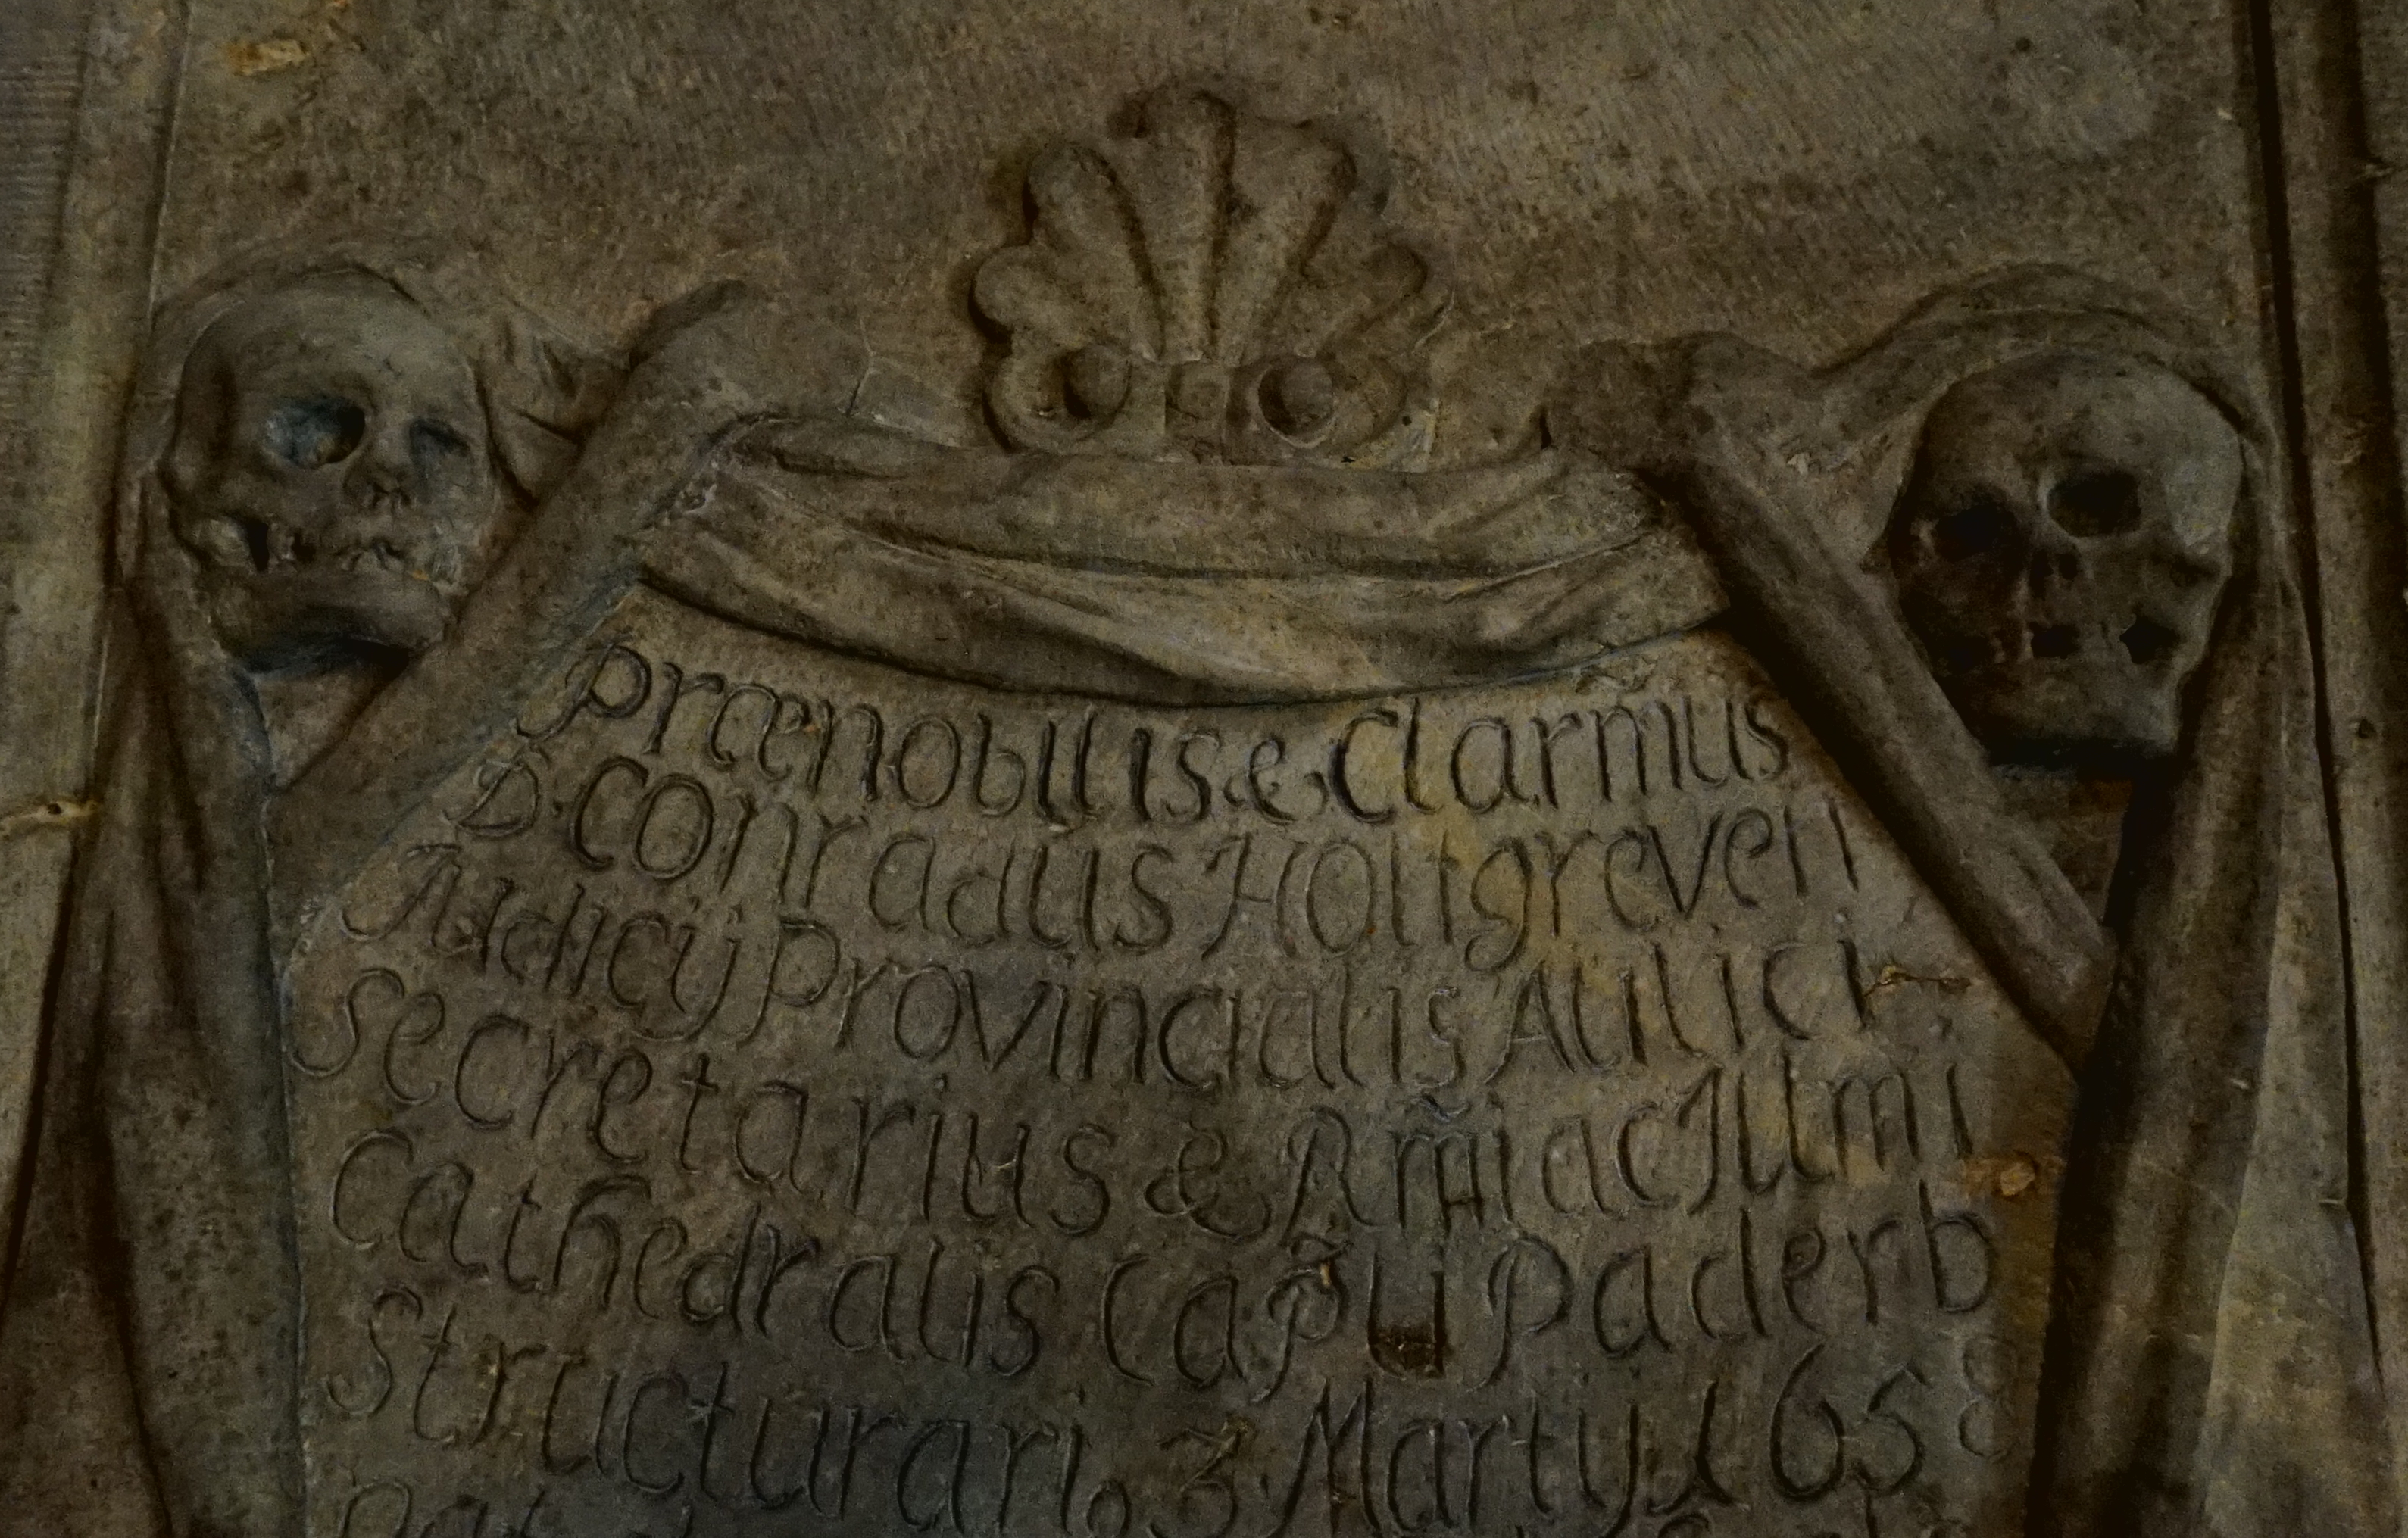 Prænobilis & Clarm̃us
D. Conradus Holtgreven
Judicÿ Provincialis Aulici
Secretarius & Am̃i ac Illmi
Cathedralis Cap̃li Paderb
Structurari9 3. Martÿ 1658